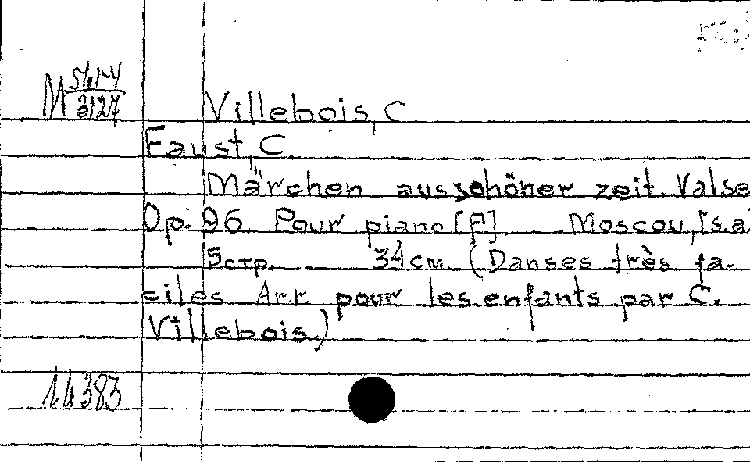 Villebois, C
Faust, C
Märchen aus schöner zeit. Valse
Op. 96 Pour piano [F]. Moscou, [s.a
5 стр. 34 см. (Danses très fa-
ciles Arr pour les enfants par C.
Villebois.)